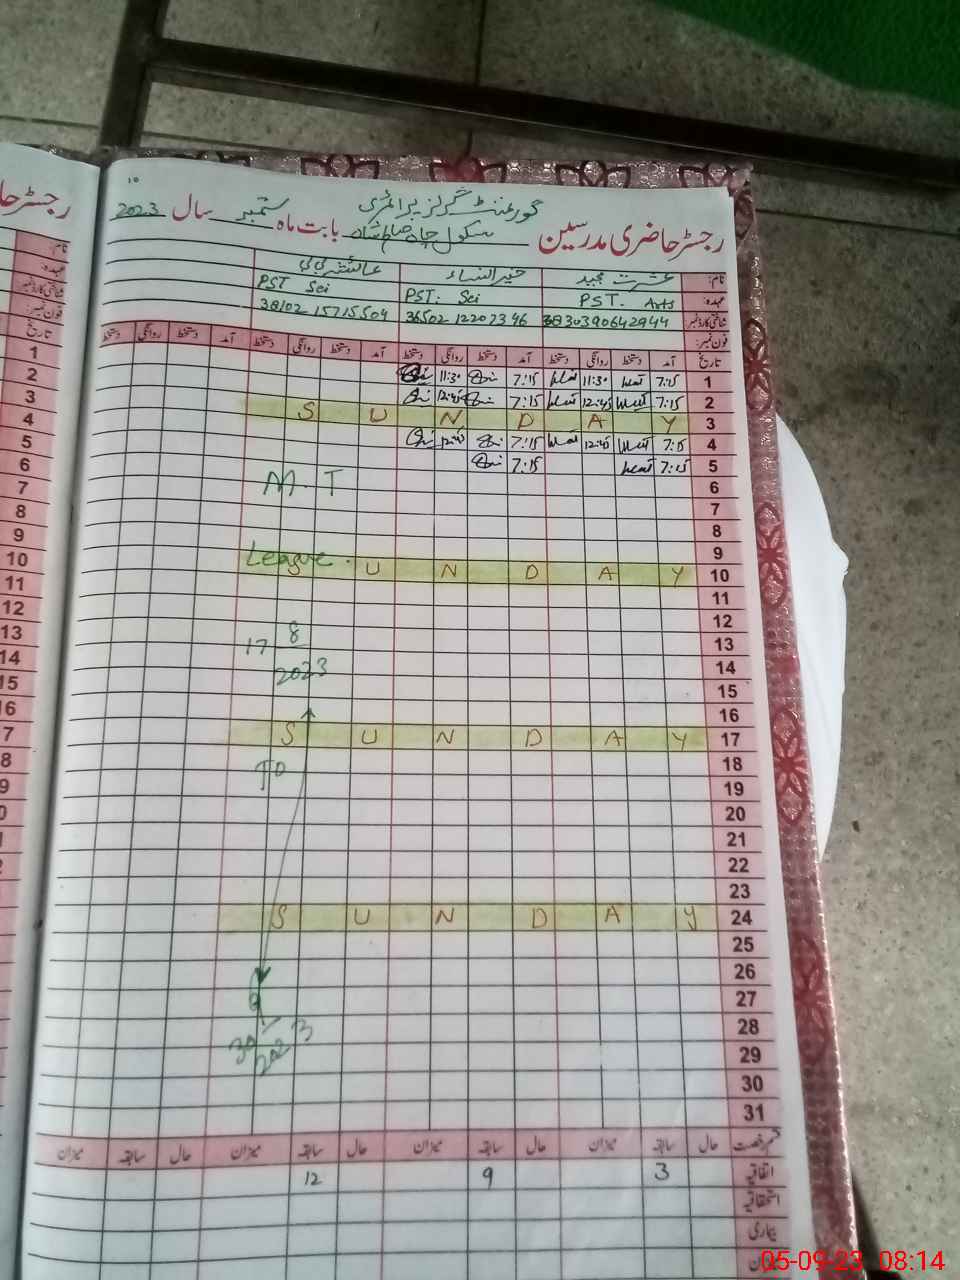 گورنمنٹ گرلز پرائمری
رجسٹر حاضری مدرسین سکول چاہ بابت ماہ ستمبر سال 2023
نام: عشرت مجید خیرالنساء عائشہ بی بی
عہدہ: PST. Arts PST. Sci PST Sci
شناختی کارڈ نمبر 3830390642944 3650212207346 3810215715509
فون نمبر:
تاریخ آمد دستخط روانگی دستخط آمد دستخط روانگی دستخط آمد دستخط روانگی دستخط آمد دستخط روانگی دستخط
1 7:15 11:30 7:15 11:30
2 7:15 12:45 7:15 12:45
3 S U N D A Y
4 7:15 12:45 7:15 12:45
5 7:15 7:15
6
M.T
7
8
9
League.
10 S U N D A Y
11
12
17 8
13
2023
14
15
16
17 S U N D A Y
18
TO
19
20
21
22
23
24 S U N D A Y
25
26
27
28
2023
29
30
31
قسم رخصت حال سابقہ میزان حال سابقہ میزان حال سابقہ میزان حال سابقہ میزان
اتفاقیہ 3 9 12
استحقاقیہ
بیماری
رجسٹر حا
نام:
عہدہ:
شناختی کارڈ نمبر
فون نمبر:
تاریخ
1
2
3
4
5
6
7
8
9
10
11
12
13
14
15
16
05-09-23 08:14